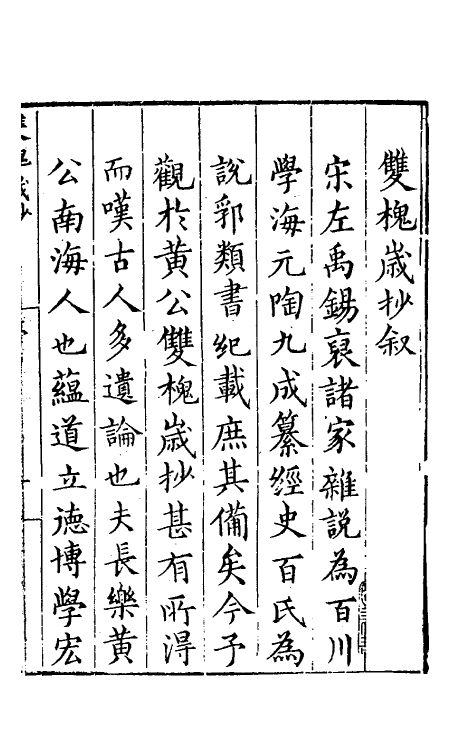 雙槐歳抄叙
宋左禹錫裒諸家雜説為百川
學海元陶九成纂經史百氏為
說郛類書紀載庶其備矣今予
觀於黄公雙槐歳抄甚有所得
而嘆古人多遺論也夫長樂黄
公南海人也蘊道立德博學宏